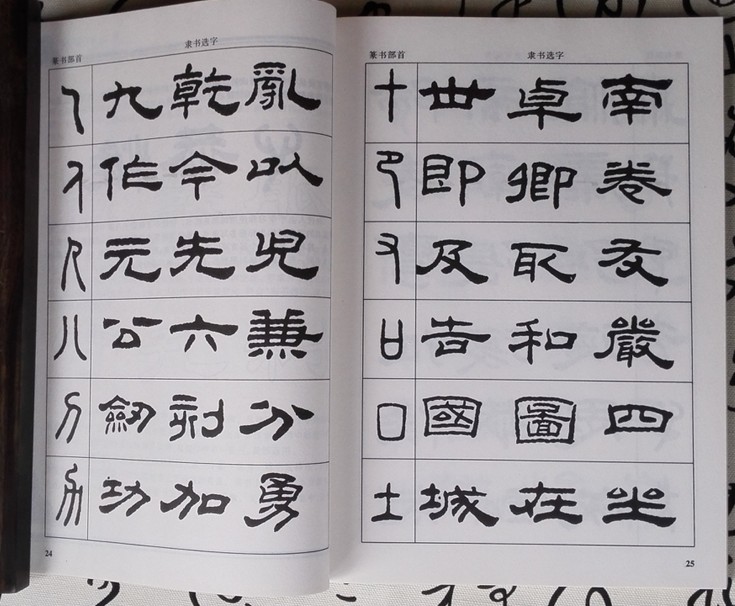 篆书部首 隶书选字
乙 九 乾 亂
人 作 今 以
儿 元 先 兒
八 公 六 兼
刀 劒 分
力 功 加 勇
24
篆书部首 隶书选字
十 世 卓 南
卩 即 卿 卷
又 及 取 友
口 告 和 嚴
囗 國 圖 四
土 城 在 坐
25